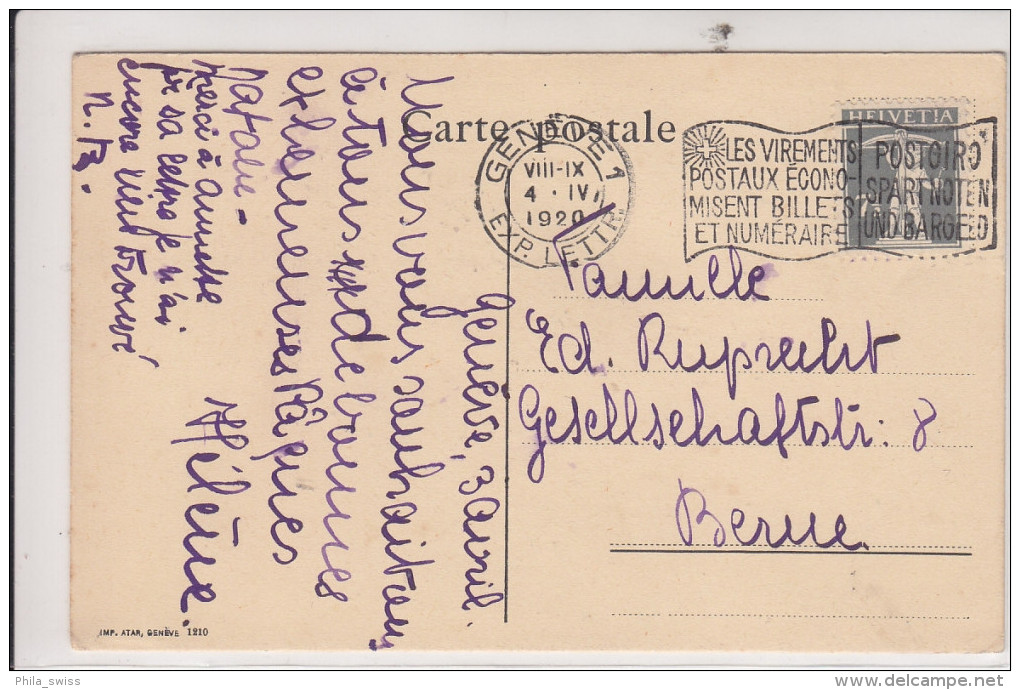 Carte postale
GENÈVE 1
VIII-IX
4 . IV
1920
EXP. LETTR.
LES VIREMENTS
POSTAUX ÉCONO-
MISENT BILLETS
ET NUMÉRAIRE
POSTGIRO
SPART NOTEN
UND BARGELD
HELVETIA
7½
Famille
Ed. Ruprecht
Gesellschaftstr: 8
Berne.
Genève, 3 avril.
Nous vous souhaitons
à tous de bonnes
et heureuses Pâques
Hélène.
Natalie -
Merci à Annette
pr sa lettre je n'ai
encore rient trouvé
N. R.
IMP. ATAR, GENÈVE 1210
Phila_swiss
delcampe.net